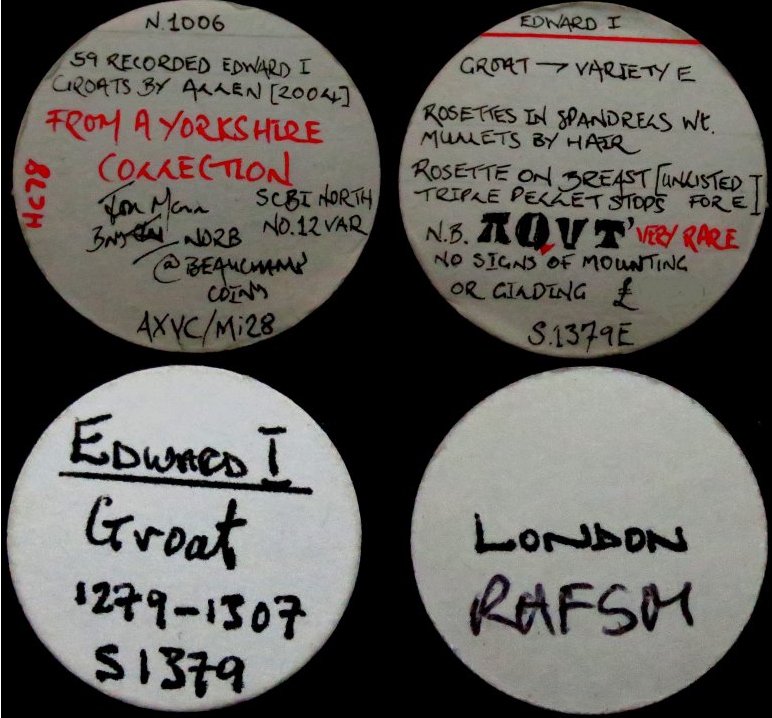 N.1006
59 RECORDED EDWARD I
GROATS BY ALLEN [2004]
FROM A YORKSHIRE
COLLECTION
HC78
SCBI NORTH
NO.12 VAR
NORB
@ BEAUCHAMP
COINS
AXVC/Mi28
EDWARD I
GROAT → VARIETY E
ROSETTES IN SPANDRELS Wt.
MULLETS BY HAIR
ROSETTE ON BREAST [UNLISTED
TRIPLE PELLET STOPS FOR E]
N.B. AQVT' VERY RARE
NO SIGNS OF MOUNTING
OR GILDING £
S.1379E
EDWARD I
Groat
1279-1307
S1379
LONDON